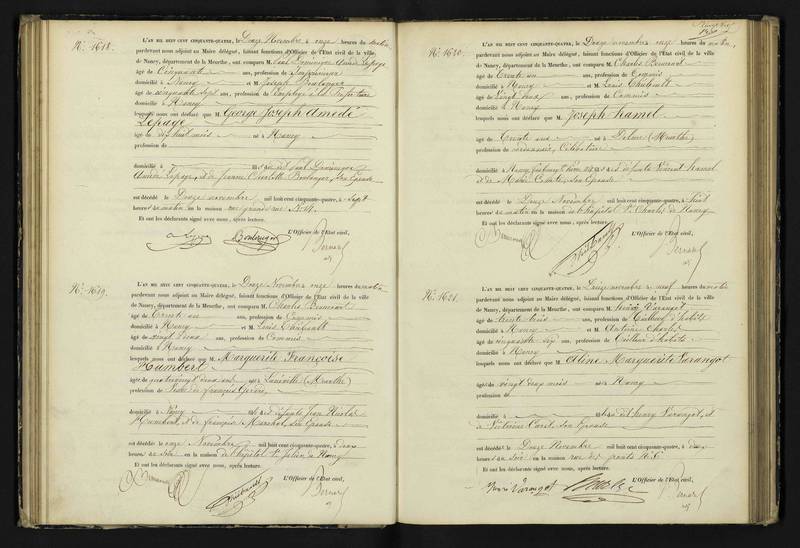 N° 1618.
L'AN MIL HUIT CENT CINQUANTE-QUATRE, le Douze Novembre à onze heures du matin
pardevant nous adjoint au Maire délégué, faisant fonctions d'Officier de l'Etat civil de la ville
de Nancy, département de la Meurthe, ont comparu M. Paul Dominique Amédée Lepage
âgé de Cinquante ans, profession de
domicilié à Nancy et M. Joseph Boulanger
âgé de cinquante sept ans, profession de Employé à la Préfecture
domicilié à Nancy
lesquels nous ont déclaré que M. George Joseph Amédé
Lepage
âgé de dix huit mois né à Nancy
profession de
domicilié à fils de Paul Dominique
Amédée Lepage, et de Jeanne Charlotte Boulanger, son Epouse
est décédé le Douze novembre mil huit cent cinquante-quatre, à sept
heures du matin en la maison rue grande rue N.
Et ont les déclarants signé avec nous, après lecture.
L'Officier de l'Etat civil,
N° 1619.
L'AN MIL HUIT CENT CINQUANTE-QUATRE, le Douze Novembre onze heures du matin
pardevant nous adjoint au Maire délégué, faisant fonctions d'Officier de l'Etat civil de la ville
de Nancy, département de la Meurthe, ont comparu M. Charles
âgé de Trente un ans, profession de Commis
domicilié à Nancy et M. Louis Thiébault
âgé de vingt deux ans, profession de Commis
domicilié à Nancy
lesquels nous ont déclaré que M. Marguerite Françoise
Humbert
âgée de quatrevingt deux ans née à Lunéville (Meurthe)
profession de
domicilié à Nancy fille de défunts Jean Nicolas
Humbert, et de françoise Marchal, son Epouse
est décédé le onze Novembre mil huit cent cinquante-quatre, à deux
heures du soir en la maison de l'hopital St Julien de Nancy
Et ont les déclarants signé avec nous, après lecture.
L'Officier de l'Etat civil,
N° 1620.
L'AN MIL HUIT CENT CINQUANTE-QUATRE, le Douze novembre onze heures du matin,
pardevant nous adjoint au Maire délégué, faisant fonctions d'Officier de l'Etat civil de la ville
de Nancy, département de la Meurthe, ont comparu M. Charles
âgé de Trente un ans, profession de Commis
domicilié à Nancy et M. Louis Thiébault
âgé de Vingt deux ans, profession de Commis
domicilié à Nancy
lesquels nous ont déclaré que M. Joseph Hamel
âgé de Trente ans né à Delme (Meurthe)
profession de cordonnier, Célibataire
domicilié à Nancy fils de défunts Vincent Hamel
et de son Epouse
est décédé le Douze Novembre mil huit cent cinquante-quatre, à huit
heures du matin en la maison de l'hopital St Charles de Nancy
Et ont les déclarants signé avec nous, après lecture.
L'Officier de l'Etat civil,
N° 1621.
L'AN MIL HUIT CENT CINQUANTE-QUATRE, le Treize novembre à neuf heures du matin
pardevant nous adjoint au Maire délégué, faisant fonctions d'Officier de l'Etat civil de la ville
de Nancy, département de la Meurthe, ont comparu M. Henri Varangot
âgé de trente trois ans, profession de Tailleur d'habits
domicilié à Nancy et M. Antoine
âgé de cinquante six ans, profession de Tailleur d'habits
domicilié à Nancy
lesquels nous ont déclaré que M. Aline Marguerite Varangot
âgée de vingt deux mois née à Nancy
profession de
domicilié à fille de henry Varangot, et
de son Epouse
est décédée le Douze Novembre mil huit cent cinquante-quatre, à deux
heures du soir en la maison rue des ponts N. 6.
Et ont les déclarants signé avec nous, après lecture.
L'Officier de l'Etat civil,
Henri Varangot